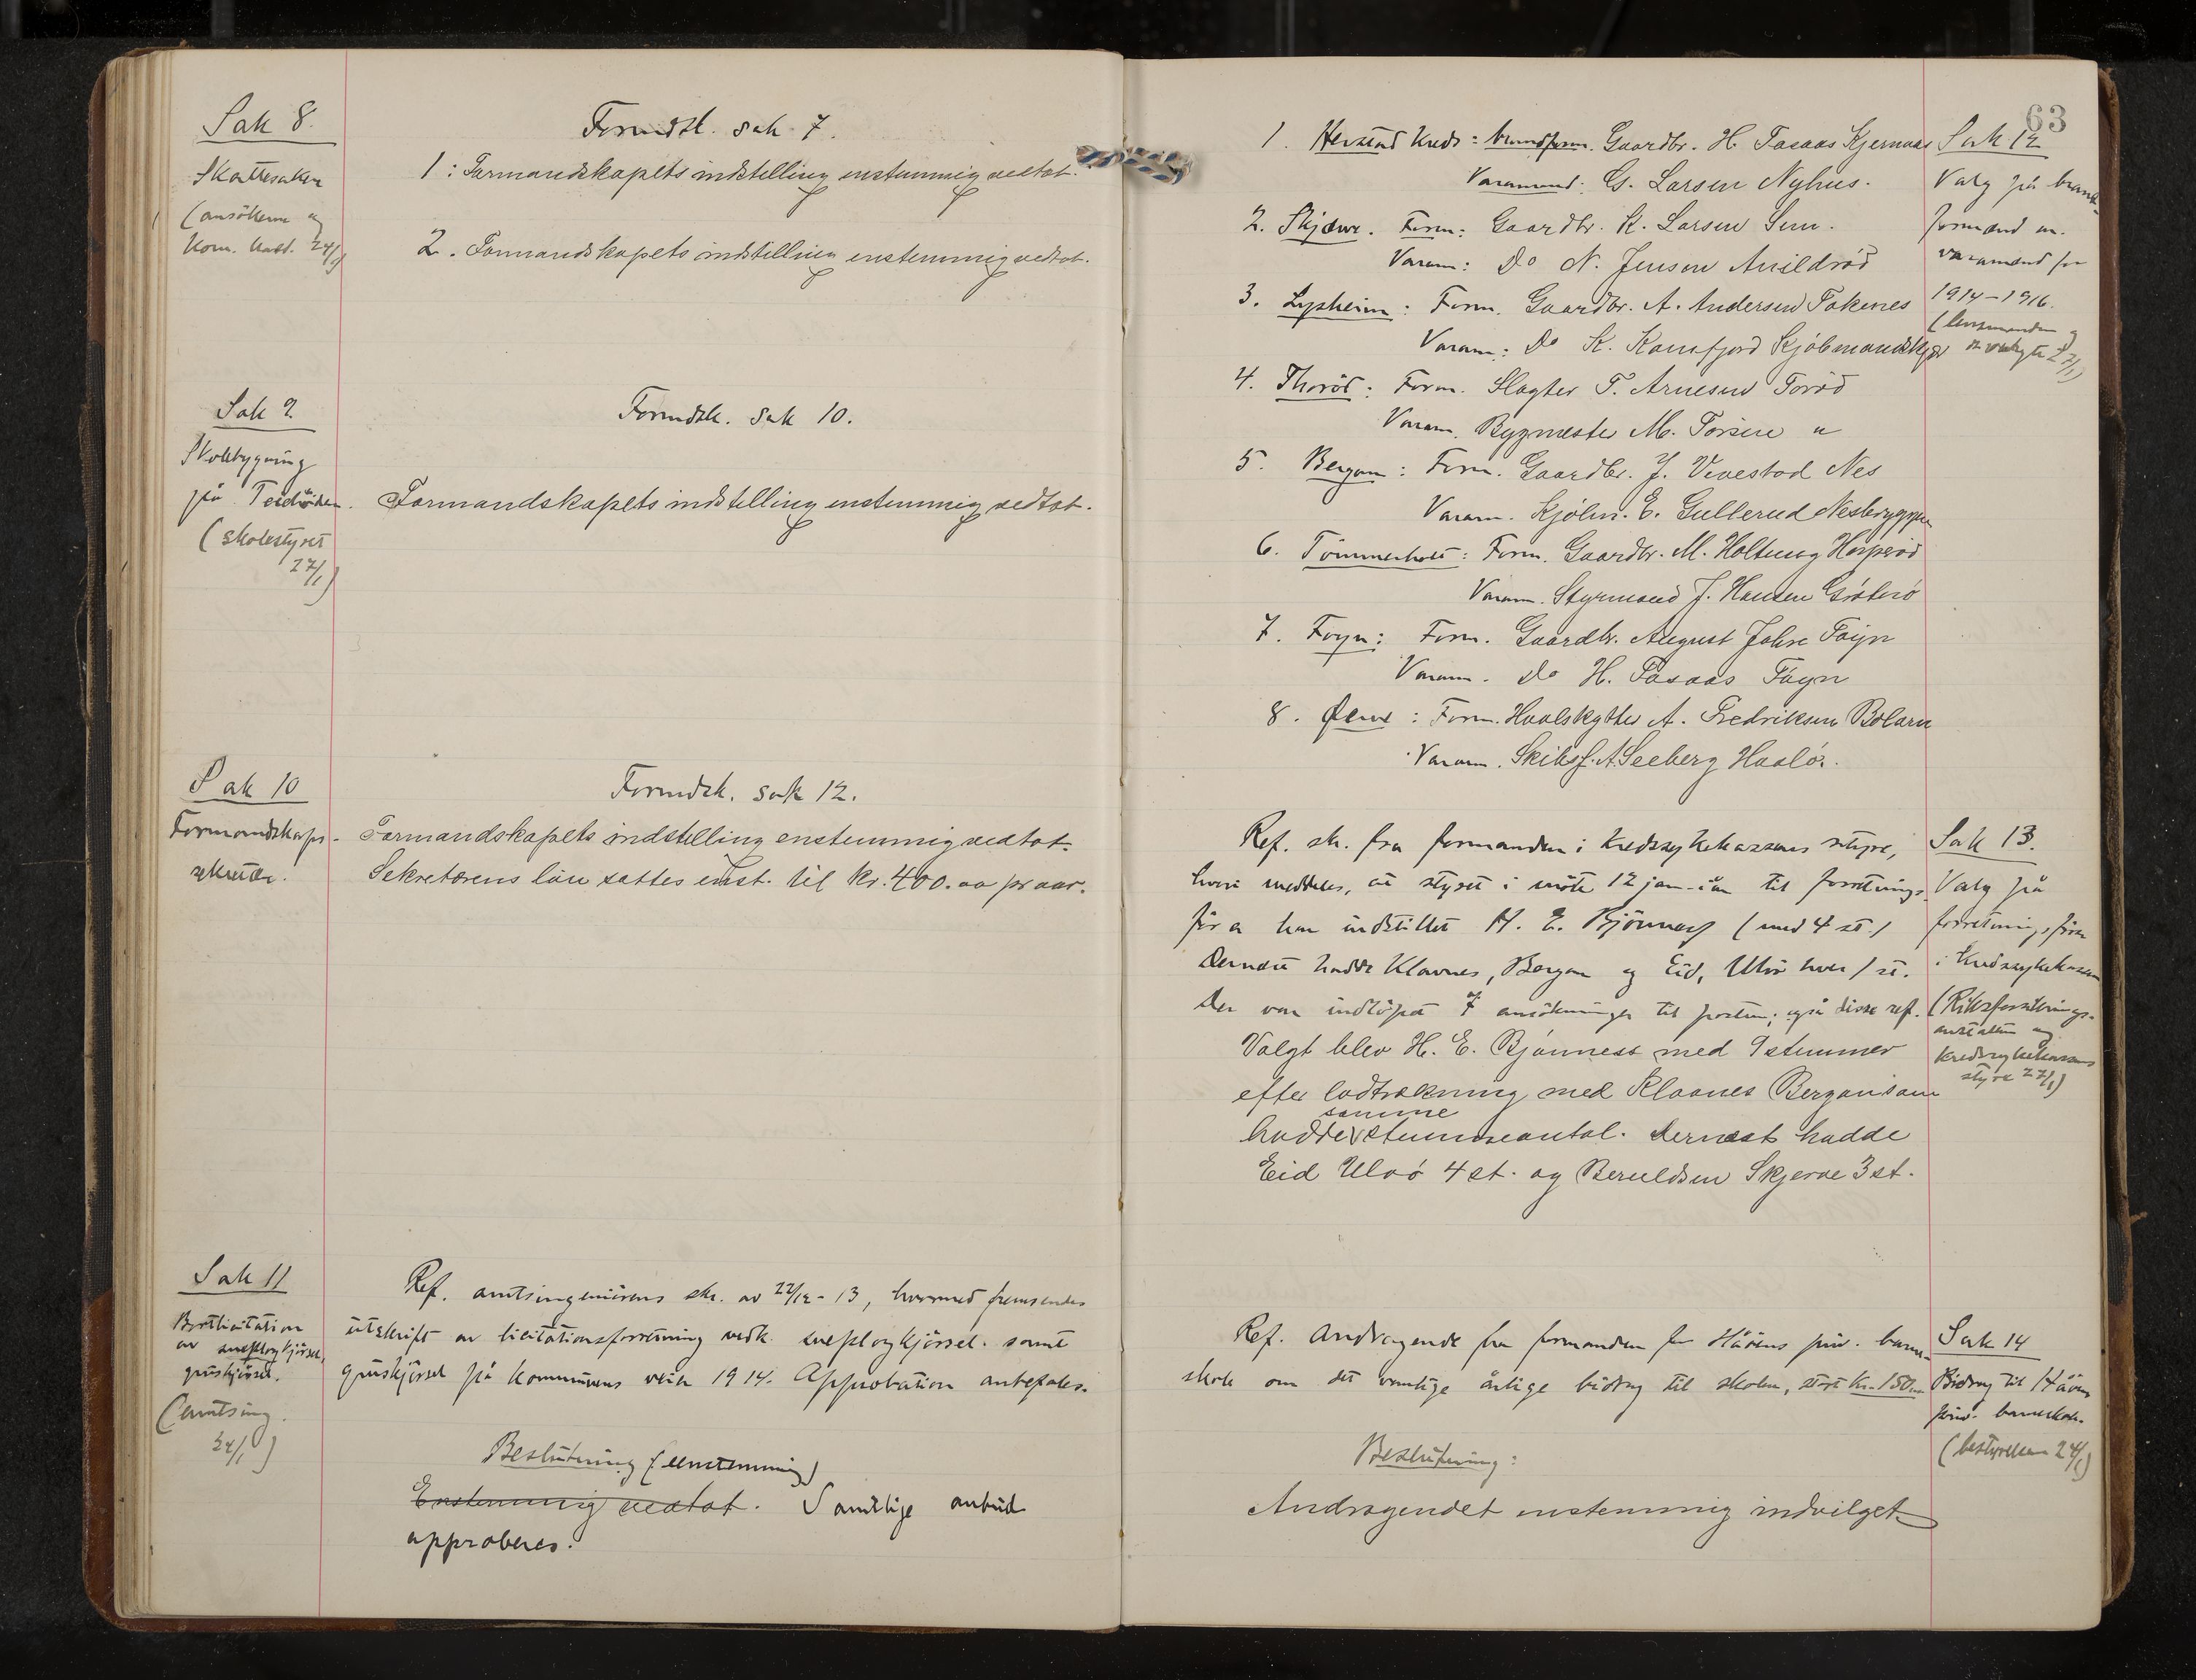 Sak 8.
Skattesaker
(ansökerne og
kom. kass. 24/1)
Formdsk. sak 7.
1: Formandskapets indstilling enstemmig vedtat.
2. Formandskapets indstilling enstemmig vedtat.
Sak 9
Skolebygning
på Teieåsen.
(skolestyret
27/1)
Formdsk. sak 10.
Formandskapets indstilling enstemmig vedtat.
Sak 10
Formandskaps-
sekretær.
Formdsk. sak 12.
Formandskapets indstilling enstemmig vedtat.
Sekretærens løn sattes enst. til kr. 400.00 pr aar.
Sak 11
Bortlicitation
av sneplogkjörsel,
gruskjörsel.
(amtsing.
24/1)
Ref. amtsingeniörens skr. av 22/12 - 13, hvormed fremsendes
utskrift av licitationsforretning vedk. sneplogkjörsel. samt
gruskjörsel på kommunens veier 1914. Approbation anbefales.
Beslutning (enstemmig)
Enstemmig vedtat. Samtlige anbud
approberes.
63
1. Herstad Kreds: brandform. Gaardbr. H. Fasaas Kjernaas
Varamand: G. Larsen Nyhus.
2. Skjerve. Form: Gaardbr. K. Larsen Sem.
Varam: Do N. Jensen
3. Lysheim: Form. Gaardbr. A. Andersen Tokenes
Varam: Do K. Kamfjord Kjöbmandskjær
4. Thoröd: Form. Slagter T. Arnesen Toröd
Varam. Bygmester M. Torsen "
5. Bergan: Form. Gaardbr. J. Vivestad Nes
Varam. Kjölm. E. Gullerud Nesbryggen
6. Tömmerholt: Form. Gaardbr. M. Holtung Hesperöd
Varam. Styrmand J. Hansen
7. Foyn: Form. Gaardbr. August Jahre Föyn
Varam. Do H. Fasaas Föyn
8. Öene: Form. Hvalskytter A. Fredriksen Bolærn
Varam. Skibsf. A. Seeberg Haslö.
Sak 12
Valg på brand-
formænd m.
varamænd for
1914-1916.
(lensmanden og
de valgte 27/1)
Ref. skr. fra formanden i kredssykekassens styre,
hvori meddeles, at styret i möte 12 jan. iår til forretnings-
förer har indstillet H. E. Bjönness (med 4 st.)
Dernæst hadde Klavnes, Bergan og Eid, Ulvö hver 1 st.
Der var indlöpet 7 ansökninger til posten; også disse ref.
Valgt blev H. E. Bjönness med 9 stemmer
efter lodtrækning med Klavnes Bergan som
samme
hadde stemmeantal. Dernæst hadde
Eid Ulvö 4 st. og Beruldsen Skjerve 3 st.
Sak 13.
Valg på
forretningsförer
i kredssykekassen
(Riksforsikrings-
anstalten og
kredssykekassens
styre 27/1)
Ref. Andragende fra formanden for Håöens priv. barne-
skole om det vanlige årlige bidrag til skolen, stort kr. 150.00
Beslutning:
Andragendet enstemmig indvilget.
Sak 14
Bidrag til Håöens
priv. barneskole.
(bestyrelsen 24/1)